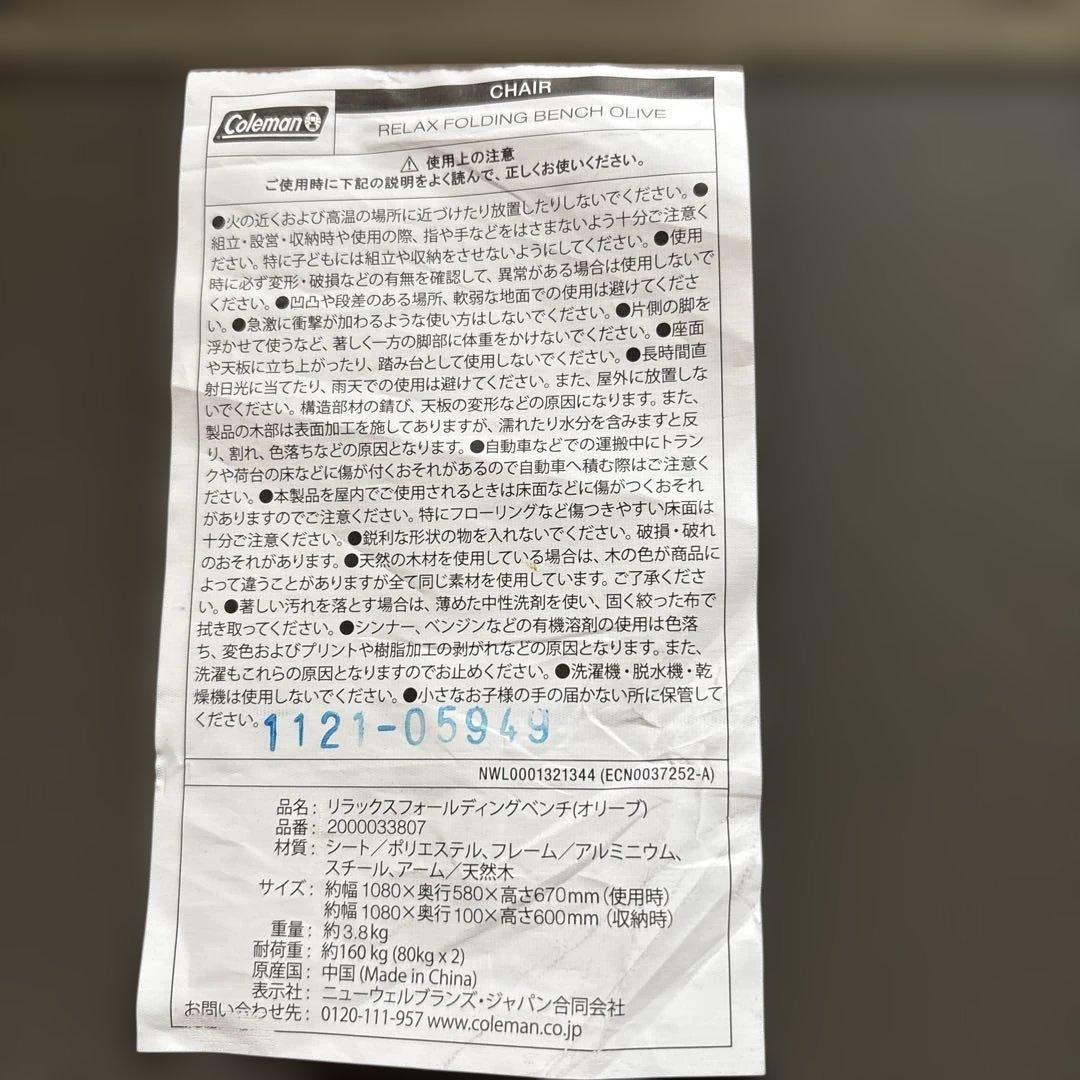 Coleman
CHAIR
RELAX FOLDING BENCH OLIVE
⚠ 使用上の注意
ご使用時に下記の説明をよく読んで、正しくお使いください。
●火の近くおよび高温の場所に近づけたり放置したりしないでください。●
組立・設営・収納時や使用の際、指や手などをはさまないよう十分ご注意く
ださい。特に子どもには組立や収納をさせないようにしてください。●使用
時に必ず変形・破損などの有無を確認して、異常がある場合は使用しないで
ください。●凹凸や段差のある場所、軟弱な地面での使用は避けてくださ
い。●急激に衝撃が加わるような使い方はしないでください。●片側の脚を
浮かせて使うなど、著しく一方の脚部に体重をかけないでください。●座面
や天板に立ち上がったり、踏み台として使用しないでください。●長時間直
射日光に当てたり、雨天での使用は避けてください。また、屋外に放置しな
いでください。構造部材の錆び、天板の変形などの原因になります。また、
製品の木部は表面加工を施してありますが、濡れたり水分を含みますと反
り、割れ、色落ちなどの原因となります。●自動車などでの運搬中にトラン
クや荷台の床などに傷が付くおそれがあるので自動車へ積む際はご注意く
ださい。●本製品を屋内でご使用されるときは床面などに傷がつくおそれ
がありますのでご注意ください。特にフローリングなど傷つきやすい床面は
十分ご注意ください。●鋭利な形状の物を入れないでください。破損・破れ
のおそれがあります。●天然の木材を使用している場合は、木の色が商品に
よって違うことがありますが全て同じ素材を使用しています。ご了承くださ
い。●著しい汚れを落とす場合は、薄めた中性洗剤を使い、固く絞った布で
拭き取ってください。●シンナー、ベンジンなどの有機溶剤の使用は色落
ち、変色およびプリントや樹脂加工の剥がれなどの原因となります。また、
洗濯もこれらの原因となりますのでお止めください。●洗濯機・脱水機・乾
燥機は使用しないでください。●小さなお子様の手の届かない所に保管して
ください。
1121-05949
NWL0001321344 (ECN0037252-A)
品名：リラックスフォールディングベンチ(オリーブ)
品番：2000033807
材質：シート／ポリエステル、フレーム／アルミニウム、
スチール、アーム／天然木
サイズ：約幅1080×奥行580×高さ670mm（使用時）
約幅1080×奥行100×高さ600mm（収納時）
重量：約3.8kg
耐荷重：約160kg (80kg x 2)
原産国：中国 (Made in China)
表示社：ニューウェルブランズ・ジャパン合同会社
お問い合わせ先：0120-111-957 www.coleman.co.jp